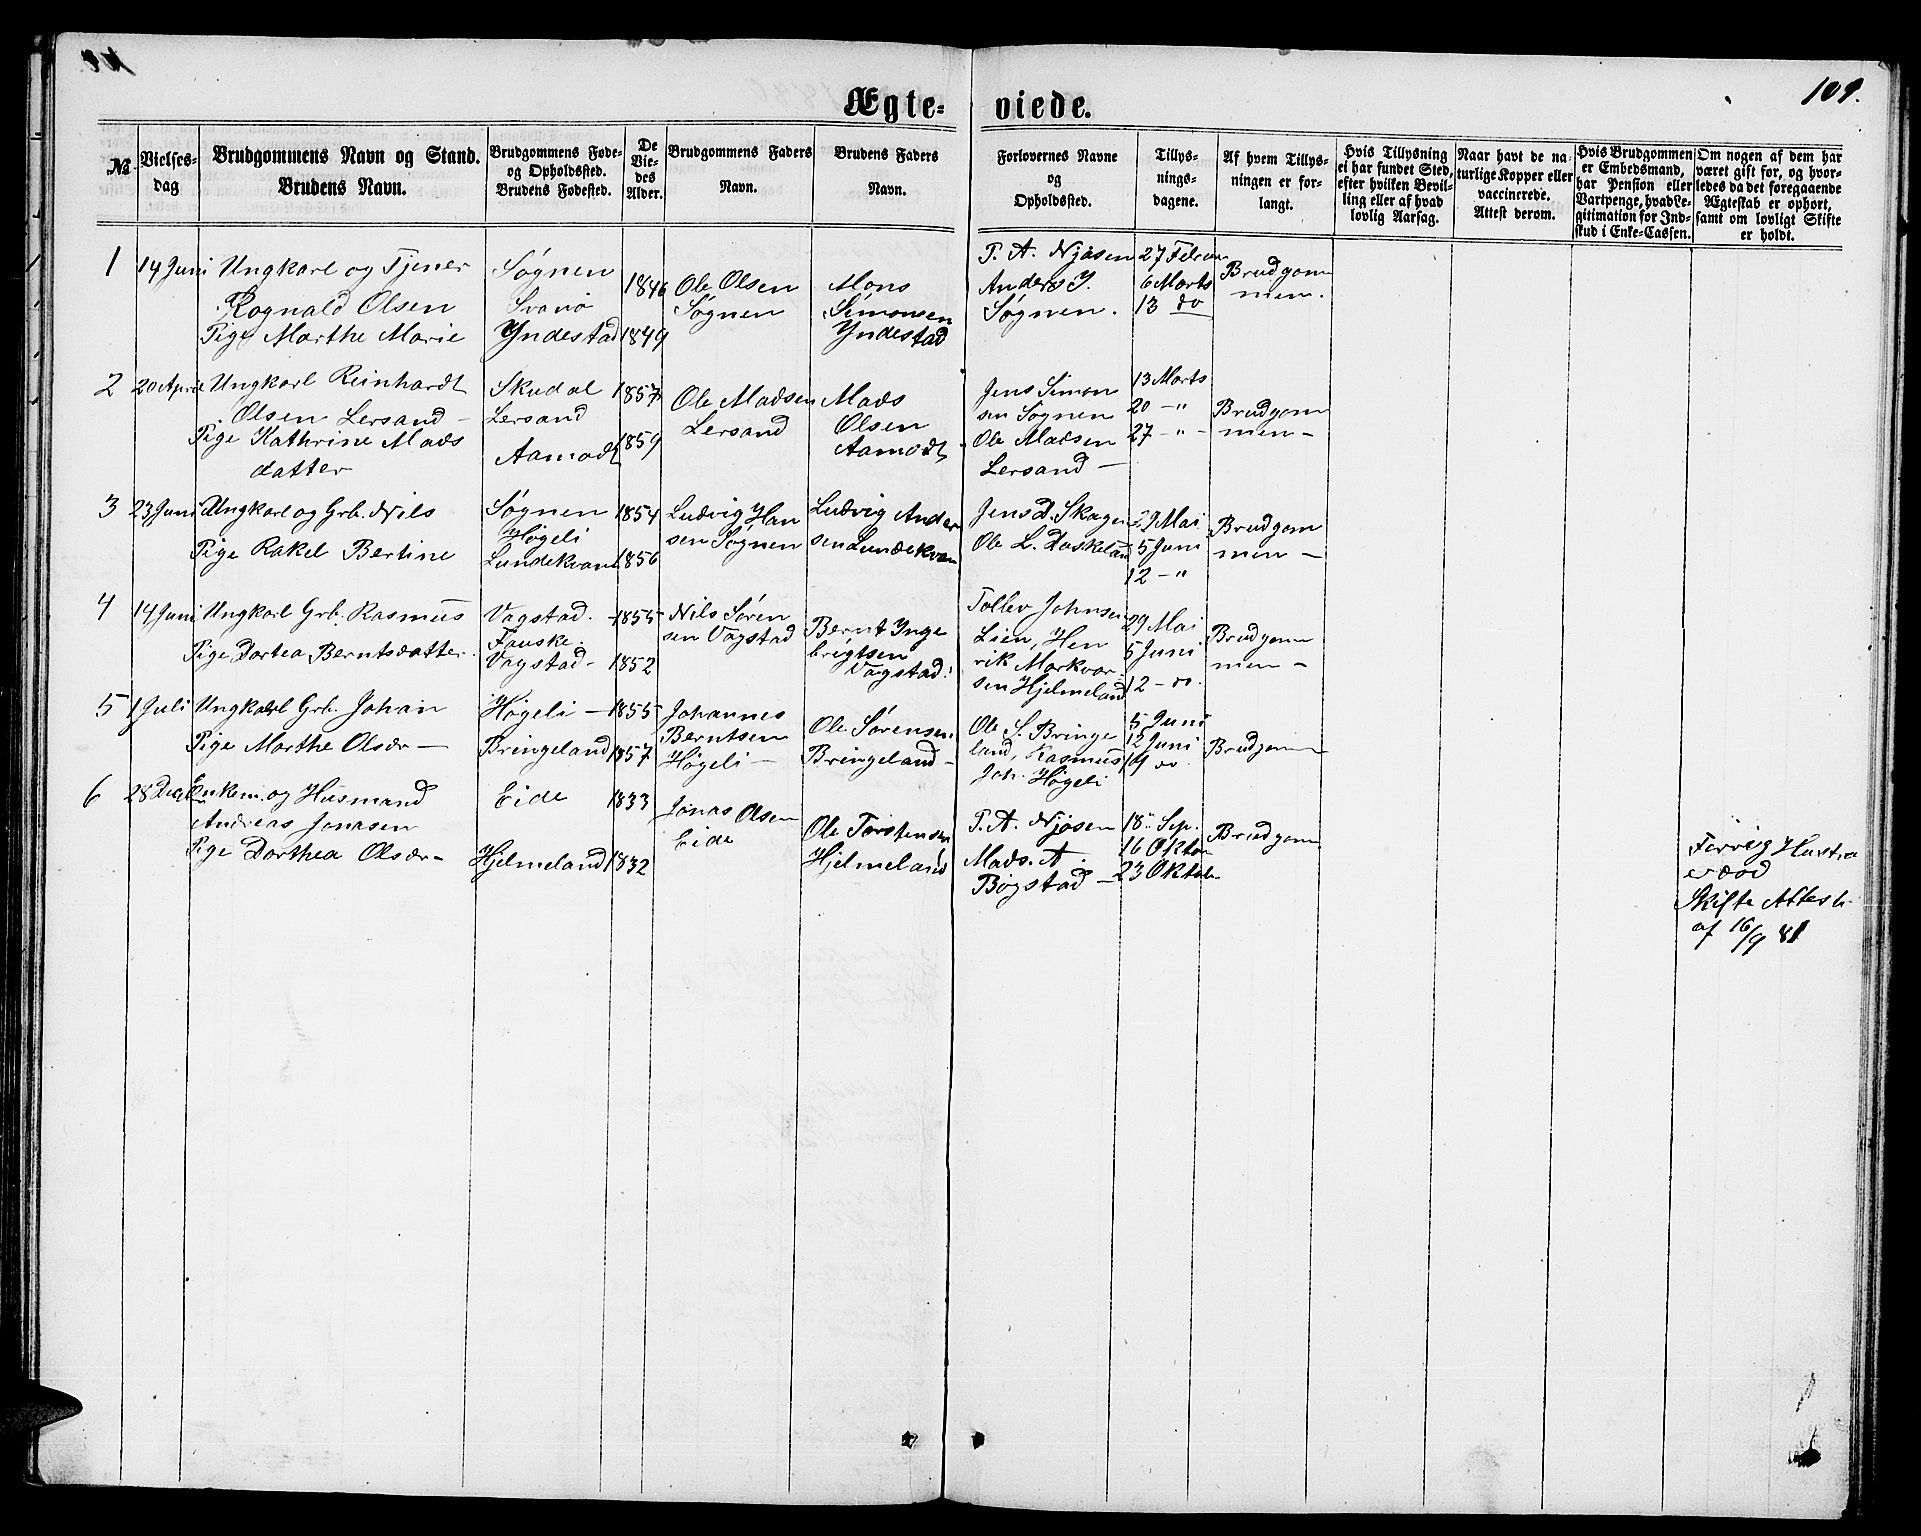 109.
Ægte-viede.
№
Vielses-
dag
Brudgommens Navn og Stand.
Brudens Navn.
Brudgommens Føde-
og Opholdssted.
Brudens Fødested.
De
Vie-
des
Alder.
Brudgommens Faders
Navn.
Brudens Faders
Navn.
Forlovernes Navne
og
Opholdssted.
Tillys-
nings-
dagene.
Af hvem Tillys-
ningen er for-
langt.
Hvis Tillysning
ei har fundet Sted,
efter hvilken Bevil-
ling eller af hvad
lovlig Aarsag.
Naar havt de na-
turlige Kopper eller
vaccinerede.
Attest derom.
Hvis Brudgommen
er Embedsmand,
har Pension eller
Vartpenge, hvad Le-
gitimation for Ind-
skud i Enke-Cassen.
Om nogen af dem har
været gift før, og hvor-
ledes da det foregaaende
Ægteskab er ophørt,
samt om lovligt Skifte
er holdt.
1
14 Juni
Ungkarl og Tjener
Rognald Olsen
Pige Marthe Marie
Søgnen
Svanø
Yndestad
1846
1849
Ole Olsen
Søgnen
Mons
Simonsen
Yndestad
T. A. Njøsen
Anders J.
Søgnen.
27 Februar
6 Marts
13 do
Brudgom
men.
2
20 April
Ungkarl Reinhardt
Olsen Lersand -
Pige Kathrine Mads
datter
Skudal
Lersand
Aamodt
1857
1859
Ole Madsen
Lersand
Mads
Olsen
Aamodt
Jens Simon
sen Søgnen
Ole Madsen
Lersand -
13 Marts
20 - "
27 - " -
Brudgom
men -
3
23 Juni
Ungkarl og Grb. Nils
Pige Rakel Bertine
Søgnen
Høgeli
Lundekvam
1854
1856
Ludvig Han
sen Søgnen
Ludvig Ander
sen Lundekvam
Jens D. Skagen
Ole L. Daskeland
29 Mai
5 Juni
12 - "
Brudgom
men -
4
14 Juni
Ungkarl Grb. Rasmus
Pige Dortea Berntsdatter
Vagstad.
Fauske
Vagstad -
1855
1852
Nils Søren
sen Vagstad
Bernt Inge
brigtsen
Vagstad.
Tollev Johnsen
Lien, Hen
rik Markvar
sen Hjelmeland
29 Mai
5 Juni
12 - do.
Brudgom
men -
5
1 Juli
Ungkarl Grb. Johan
Pige Marthe Olsdr -
Høgeli -
Bringeland
1855
1857
Johannes
Berntsen
Høgeli -
Ole Sørensen
Bringeland -
Ole S. Bringe
land, Rasmus
Joh. Høgeli
5 Juni
12 Juni
19 do
Brudgom
6
28 Decbr
Enkem. og Husmand
Andreas Jonasen
Pige Dorthea Olsdr -
Eide
Hjelmeland
1833
1832
Jonas Olsen
Eide
Ole Torstensen
Hjelmeland
T. A. Njøsen
Mads. A.
Bøgstad -
18 Sep.
16 Oktbr
23 Oktbr.
Brudgom
Forrig Hustru
er død
Skifte Attest
af 16/9 81